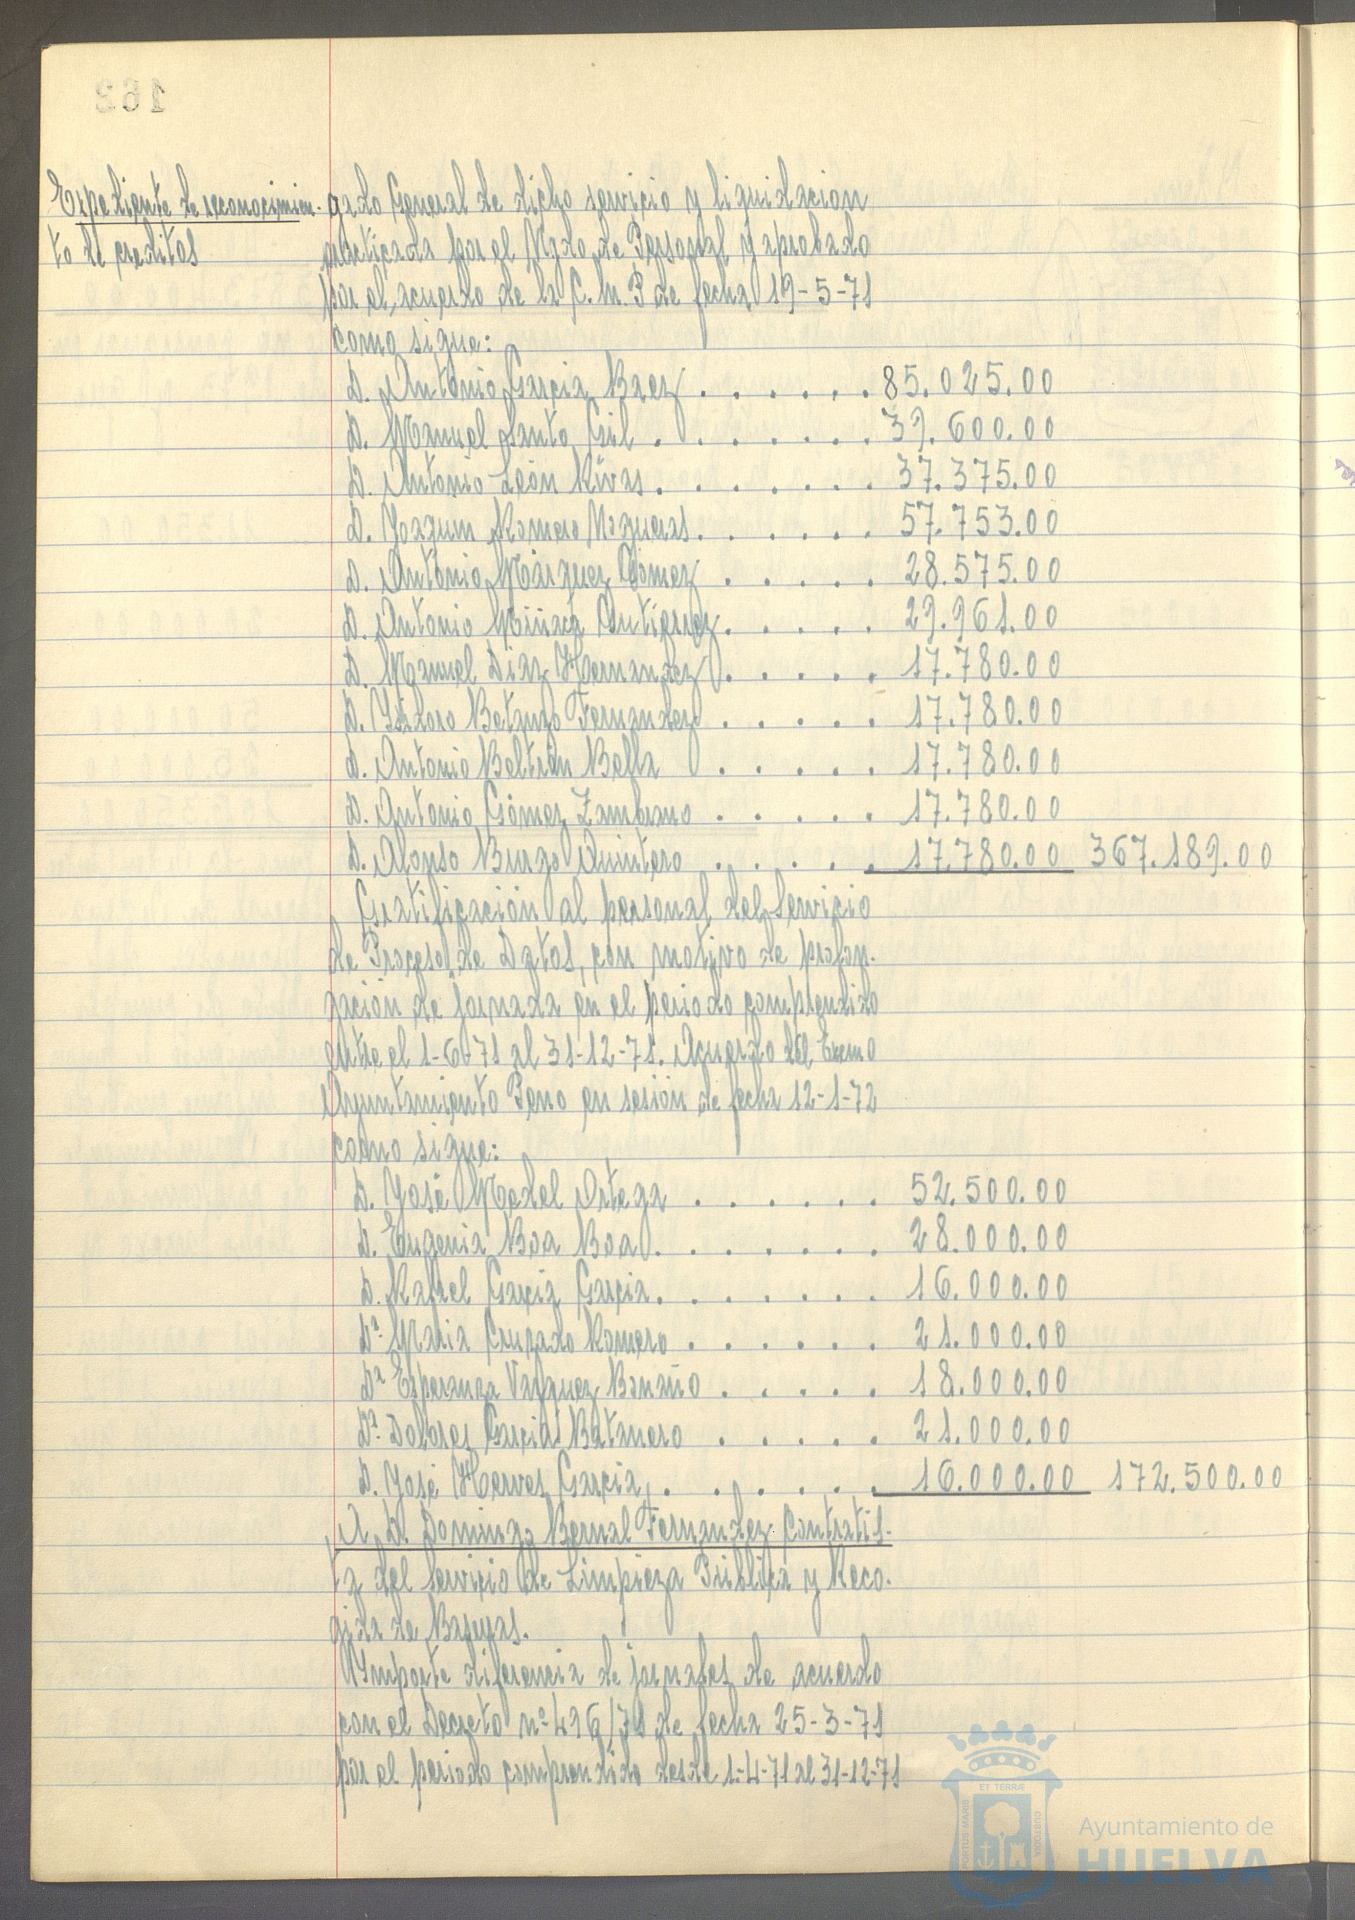 Expediente de reconocimien-
to de creditos
gado General de dicho servicio y liquidacion
practicada por el Ngdo. de Personal y aprobado
por el acuerdo de la C. M. P de fecha 19-5-71
como sigue:
D. Antonio Garcia Baez . . . . . . 85.025.00
D. Manuel Santo Gil . . . . . . . 39.600.00
D. Antonio León Rivas . . . . . . 37.375.00
D. Joaquin Romero Nogueras . . . . . 57.753.00
D. Antonio Márquez Gómez . . . . . 28.575.00
D. Antonio Gutierrez . . . . . 29.961.00
D. Manuel Diaz Hernandez . . . . . 17.780.00
D. Ysidoro Betanzo Fernandez . . . . . 17.780.00
D. Antonio Beltrán Bella . . . . . 17.780.00
D. Antonio Gómez Zambrano . . . . . 17.780.00
D. Alonso Burgo Quintero . . . . . 17.780.00 367.189.00
Gratificación al personal del Servicio
de Proceso de Datos, con motivo de prolon-
gación de jornada en el periodo comprendido
entre el 1-6-71 al 31-12-71. Acuerdo del Excmo
Ayuntamiento Peno en sesión de fecha 12-1-72
como sigue:
D. José Medel Ortega . . . . . . 52.500.00
D. Eugenia Boa Boa . . . . . . . 28.000.00
D. Rafael Garcia Garcia . . . . . . . 16.000.00
Dª. Maria Cruzado Romero . . . . . . 21.000.00
Dª Esperanza Vazquez Bonaño . . . . . 18.000.00
Dª. Dolores Garcia Batanero . . . . . 21.000.00
D. José Herves Garcia . . . . . . . 16.000.00 172.500.00
A D. Domingo Bernal Fernandez contratis-
ta del Servicio de Limpieza Publica y Reco-
gida de Basuras.
Ymporte diferencia de jornales de acuerdo
con el Decreto nº 496/71 de fecha 25-3-71
por el periodo comprendido desde 1-4-71 al 31-12-71
PORTUS MARIS ET TERRAE CUSTODIA
Ayuntamiento de
HUELVA